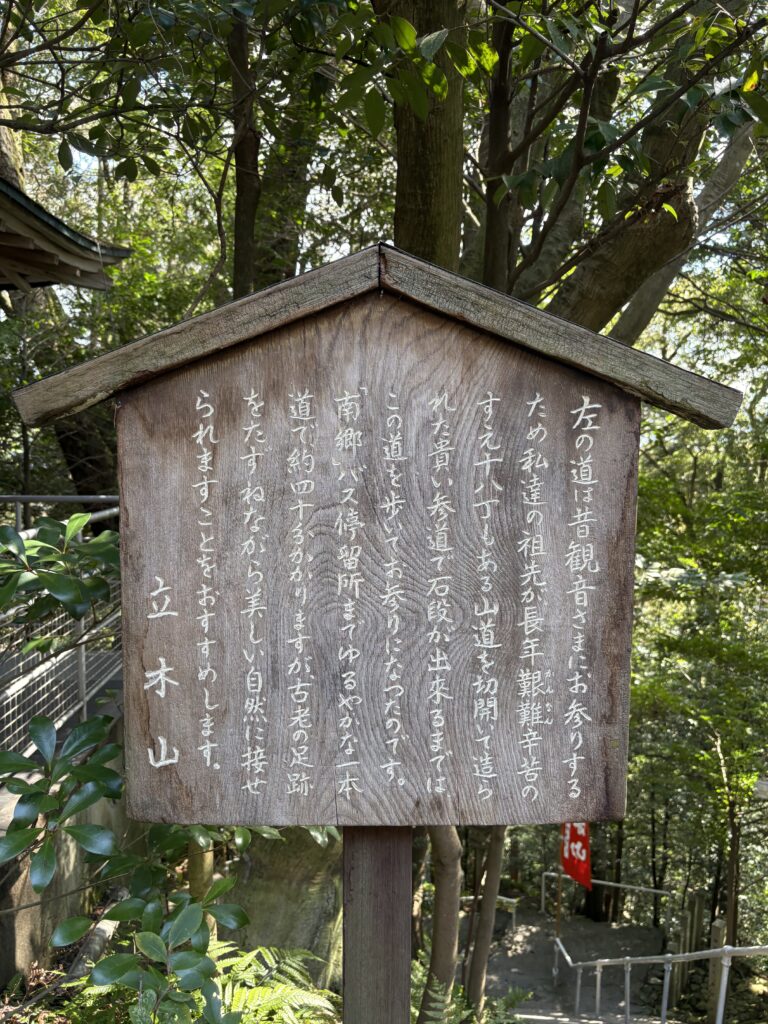 左の道は昔観音さまにお参りする
ため私達の祖先が長年艱難辛苦の
かんなん
すえ十八丁もある山道を切開いて造ら
れた貴い参道で石段が出來るまでは
この道を歩いてお参りになつたのです。
「南郷」バス停留所までゆるやかな一本
道で約四十分かかりますが、古老の足跡
をたずねながら美しい自然に接せ
られますことをおすすめします。
立木山